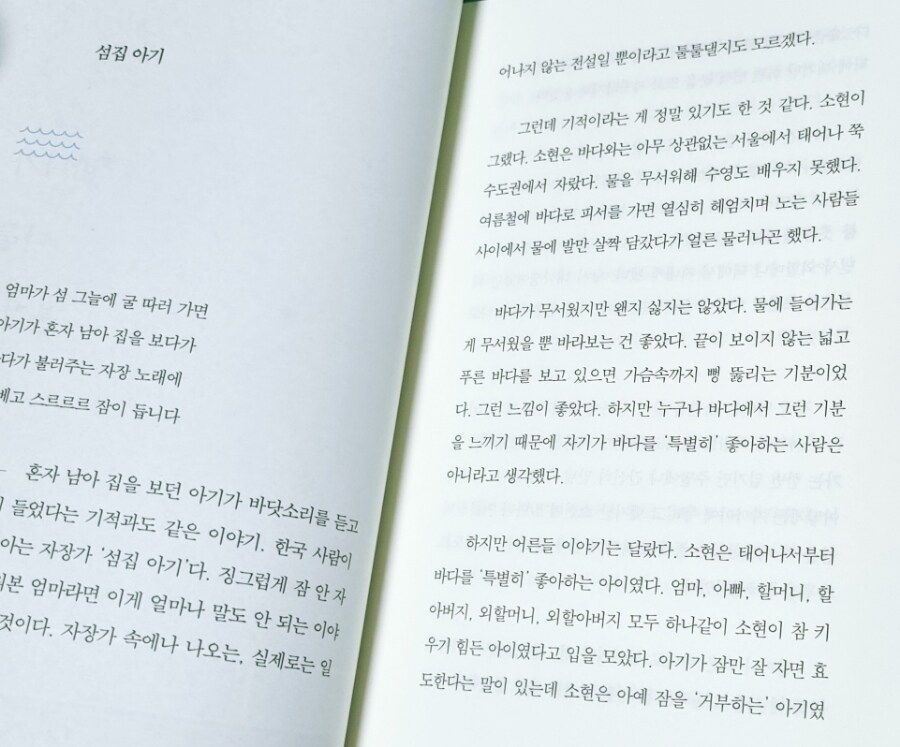 섬집 아기
엄마가 섬 그늘에 굴 따러 가면
아기가 혼자 남아 집을 보다가
불러주는 자장 노래에
베고 스르르르 잠이 듭니다
혼자 남아 집을 보던 아기가 바닷소리를 듣고
들었다는 기적과도 같은 이야기. 한국 사람이
아는 자장가 '섬집 아기'다. 징그럽게 잠 안 자
엄마라면 이게 얼마나 말도 안 되는 이야
것이다. 자장가 속에나 나오는, 실제로는 일
어나지 않는 전설일 뿐이라고 툴툴댈지도 모르겠다.
그런데 기적이라는 게 정말 있기도 한 것 같다. 소현이
그랬다. 소현은 바다와는 아무 상관없는 서울에서 태어나 쭉
수도권에서 자랐다. 물을 무서워해 수영도 배우지 못했다.
여름철에 바다로 피서를 가면 열심히 헤엄치며 노는 사람들
사이에서 물에 발만 살짝 담갔다가 얼른 물러나곤 했다.
바다가 무서웠지만 왠지 싫지는 않았다. 물에 들어가는
게 무서웠을 뿐 바라보는 건 좋았다. 끝이 보이지 않는 넓고
푸른 바다를 보고 있으면 가슴속까지 뻥 뚫리는 기분이었
다. 그런 느낌이 좋았다. 하지만 누구나 바다에서 그런 기분
을 느끼기 때문에 자기가 바다를 '특별히' 좋아하는 사람은
아니라고 생각했다.
하지만 어른들 이야기는 달랐다. 소현은 태어나서부터
바다를 '특별히' 좋아하는 아이였다. 엄마, 아빠, 할머니, 할
아버지, 외할머니, 외할아버지 모두 하나같이 소현이 참 키
우기 힘든 아이였다고 입을 모았다. 아기가 잠만 잘 자면 효
도한다는 말이 있는데 소현은 아예 잠을 '거부하는' 아기였